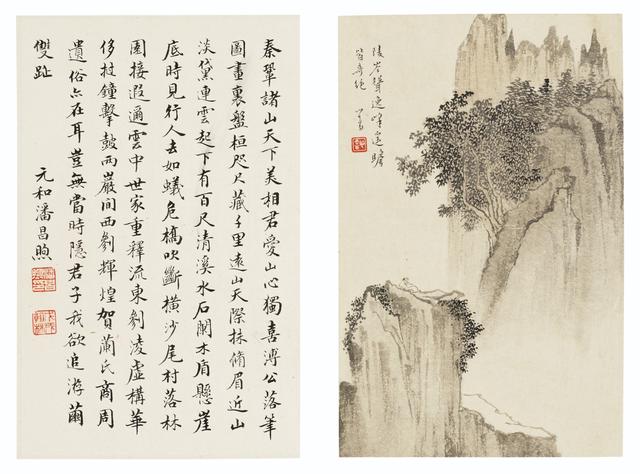 秦鞏諸山天下美相君愛山心獨喜溥公落筆
圖畫裏盤桓咫尺藏千里遠山天際抹脩眉近山
淡黛連雲起下有百尺清溪水石闌木盾懸崖
底時見行人去如蟻危橋吹斷橫沙尾村落林
園接遐邇雲中世家重釋流東剎淩虛構華
侈鐘擊鼓兩巖間西剎輝煌賀蘭氏商周
遺俗尚在耳豈無當時隱君子我欲追游繭
雙趾
元和潘昌煦
陵岑聳逸峰遙瞻
皆奇絕
心畬